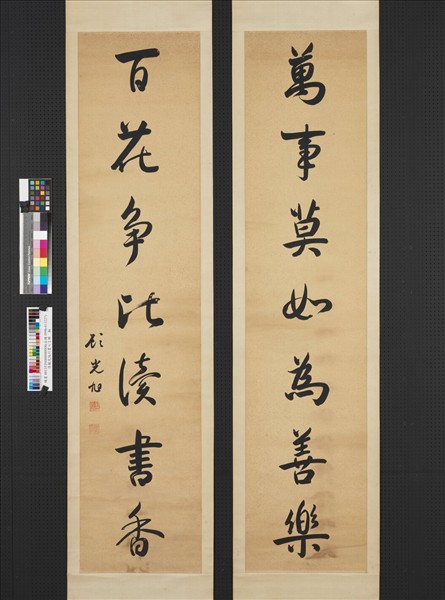 萬事莫如為善樂
百花争比讀書香
顧光旭